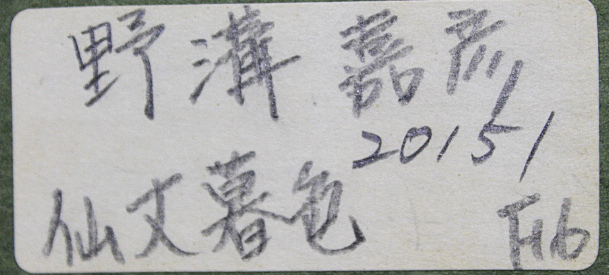 野溝 嘉彦
20151
仙丈暮色
F6